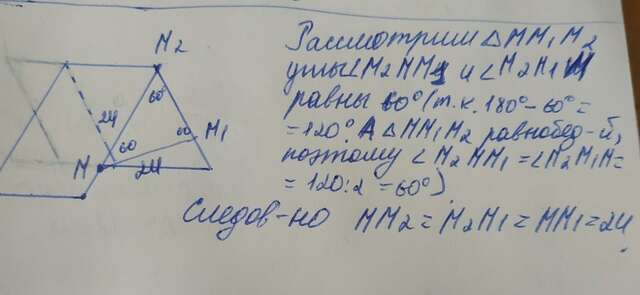 M2
60°
24
60
60
M1
M
24
Рассмотрим △MM1M2
углы ∠M2MM1 и ∠M2M1M
равны 60° (т.к. 180°-60°=
=120°. А △MM1M2 равнобед-й,
поэтому ∠M2MM1=∠M2M1M=
=120:2=60°)
Следов-но MM2=M2M1=MM1=24